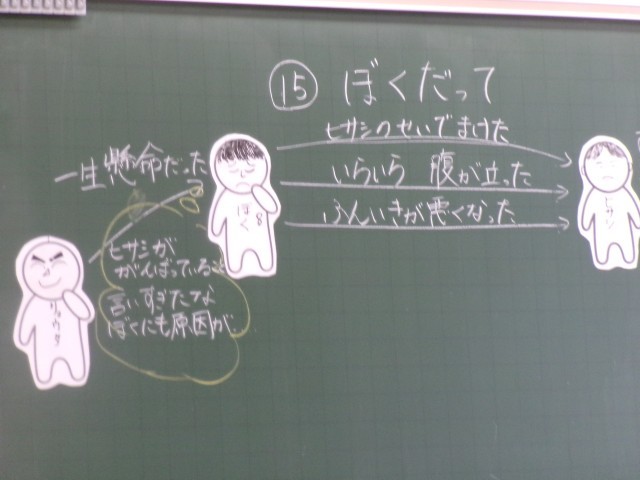 ⑮ ぼくだって
ヒサシのせいでまけた
いらいら 腹が立った
ふんいきが悪くなった
一生懸命だった
ぼく
8
ヒサシ
ヒサシが
がんばっていること
言いすぎたな
ぼくにも原因が